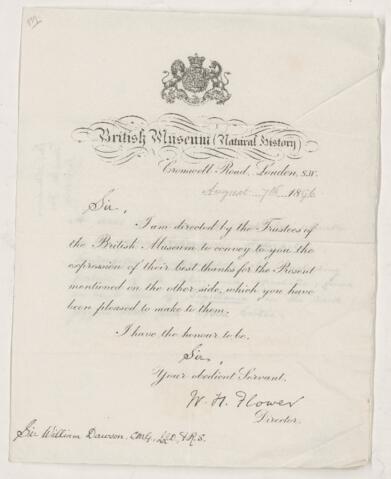 British Museum (Natural History)
Cromwell Road, London, S.W.
August 7th 1896
Sir,
I am directed by the Trustees of
the British Museum to convey to you the
expression of their best thanks for the Present
mentioned on the other side, which you have
been pleased to make to them.
I have the honour to be,
Sir,
Your obedient Servant,
W. H. Flower
Director.
Sir William Dawson, CMG, LLD, F.R.S.